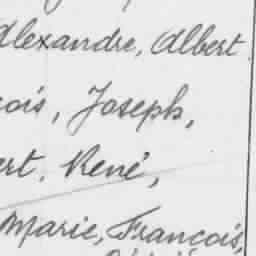 Alexandre, Albert
çois, Joseph,
ert, René,
Marie, François,